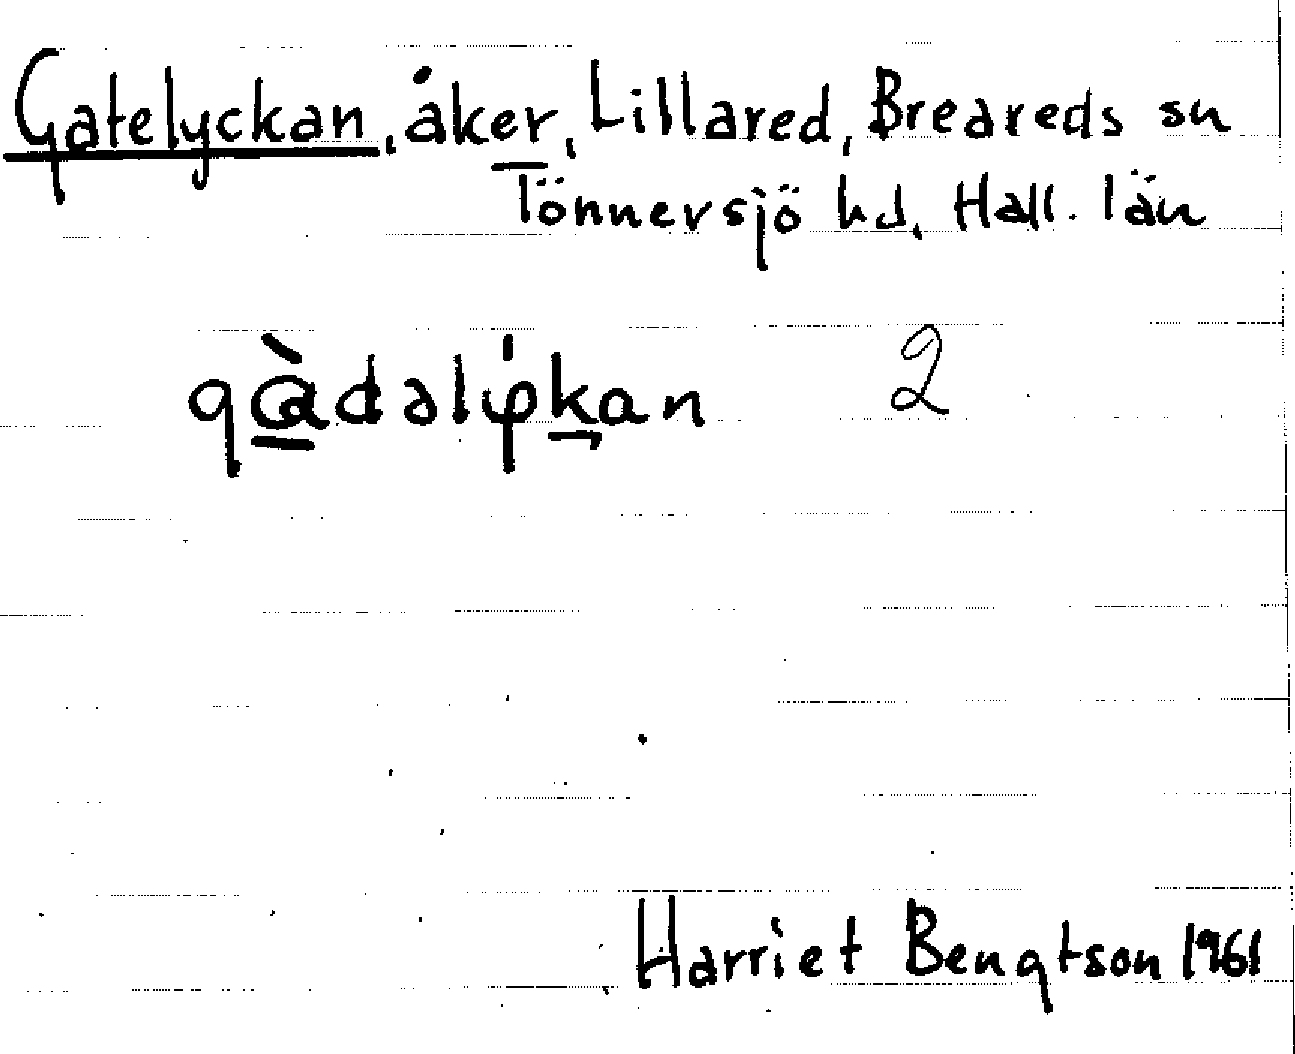 Gatelyckan, åker, Lillared, Breareds sn
Tönnersjö hd, Hall. län
qɑ̀dəlφkan 2
Harriet Bengtson 1961